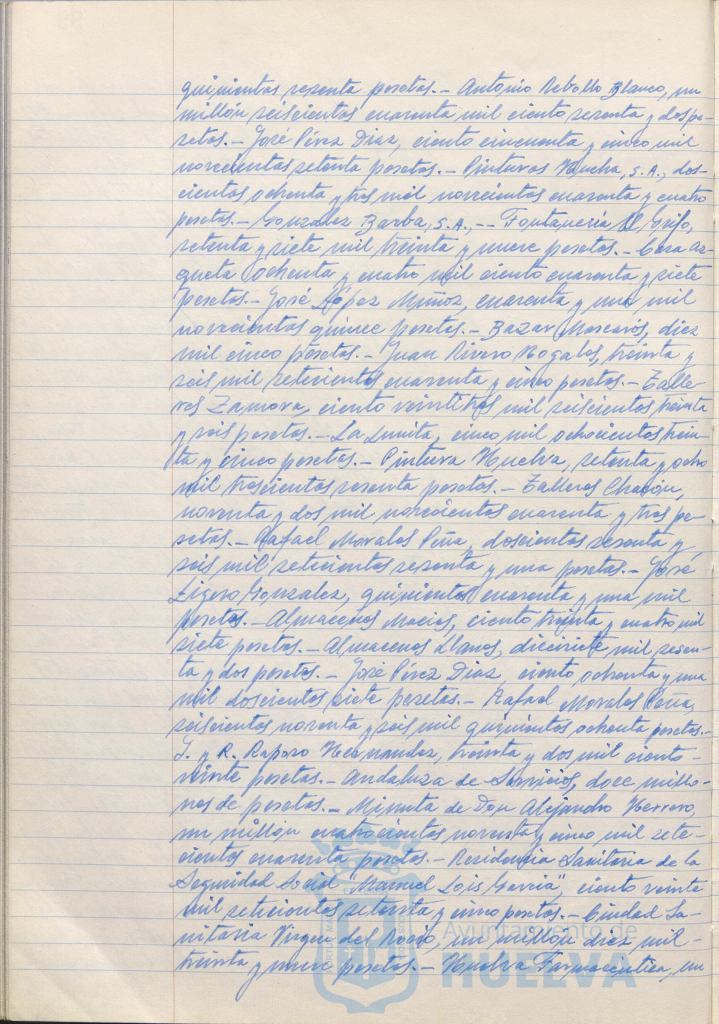 quinientas sesenta pesetas.- Antonio Rebollo Blanco, un
millón seiscientas cuarenta mil ciento sesenta y dos pe-
setas.- José Pérez Diaz, ciento cincuenta y cinco mil
novecientas setenta pesetas.- Pinturas Huelva, S.A., dos-
cientas ochenta y tres mil novecientas cuarenta y cuatro
pesetas.- Gonzalez Barba, S.A.,-- Fontaneria El Grifo,
setenta y siete mil treinta y nueve pesetas.- Casa Az-
queta ochenta y cuatro mil ciento cuarenta y siete
pesetas.- José López Muñoz, cuarenta y una mil
novecientas quince pesetas.- Bazar Mascarós, diez
mil cinco pesetas.- Juan Rivero Nogales, treinta y
seis mil setecientas cuarenta y cinco pesetas.- Talle-
res Zamora, ciento veintitres mil seiscientas treinta
y seis pesetas.- La Lunita, cinco mil ochocientas trein-
ta y cinco pesetas.- Pintura Huelva, setenta y ocho
mil trescientas sesenta pesetas.- Talleres Chacón,
noventa y dos mil novecientas cuarenta y tres pe-
setas.- Rafael Morales Peña, doscientas sesenta y
seis mil setecientas sesenta y una pesetas.- José
Ligero Gonzalez, quinientas cuarenta y una mil
pesetas.- Almacenes Macías, ciento treinta y cuatro mil
siete pesetas.- Almacenes Llanos, diecisiete mil sesen-
ta y dos pesetas.- José Pérez Diaz, ciento ochenta y una
mil doscientas siete pesetas.- Rafael Morales Peña,
seiscientas noventa y seis mil quinientas ochenta pesetas.-
J. y R. Raposo Hernandez, treinta y dos mil ciento
veinte pesetas.- Andaluza de Servicios, doce millo-
nes de pesetas.- Minuta de Don Alejandro Herrero,
un millón cuatrocientas noventa y cinco mil sete-
cientas cuarenta pesetas.- Residencia Sanitaria de la
Seguridad Social "Manuel Lois García", ciento veinte
mil setecientas setenta y cinco pesetas.- Ciudad Sa-
nitaria Virgen del Rocío, un millón diez mil
treinta y nueve pesetas.- Huelva Farmaceutica, un
Ayuntamiento de
HUELVA